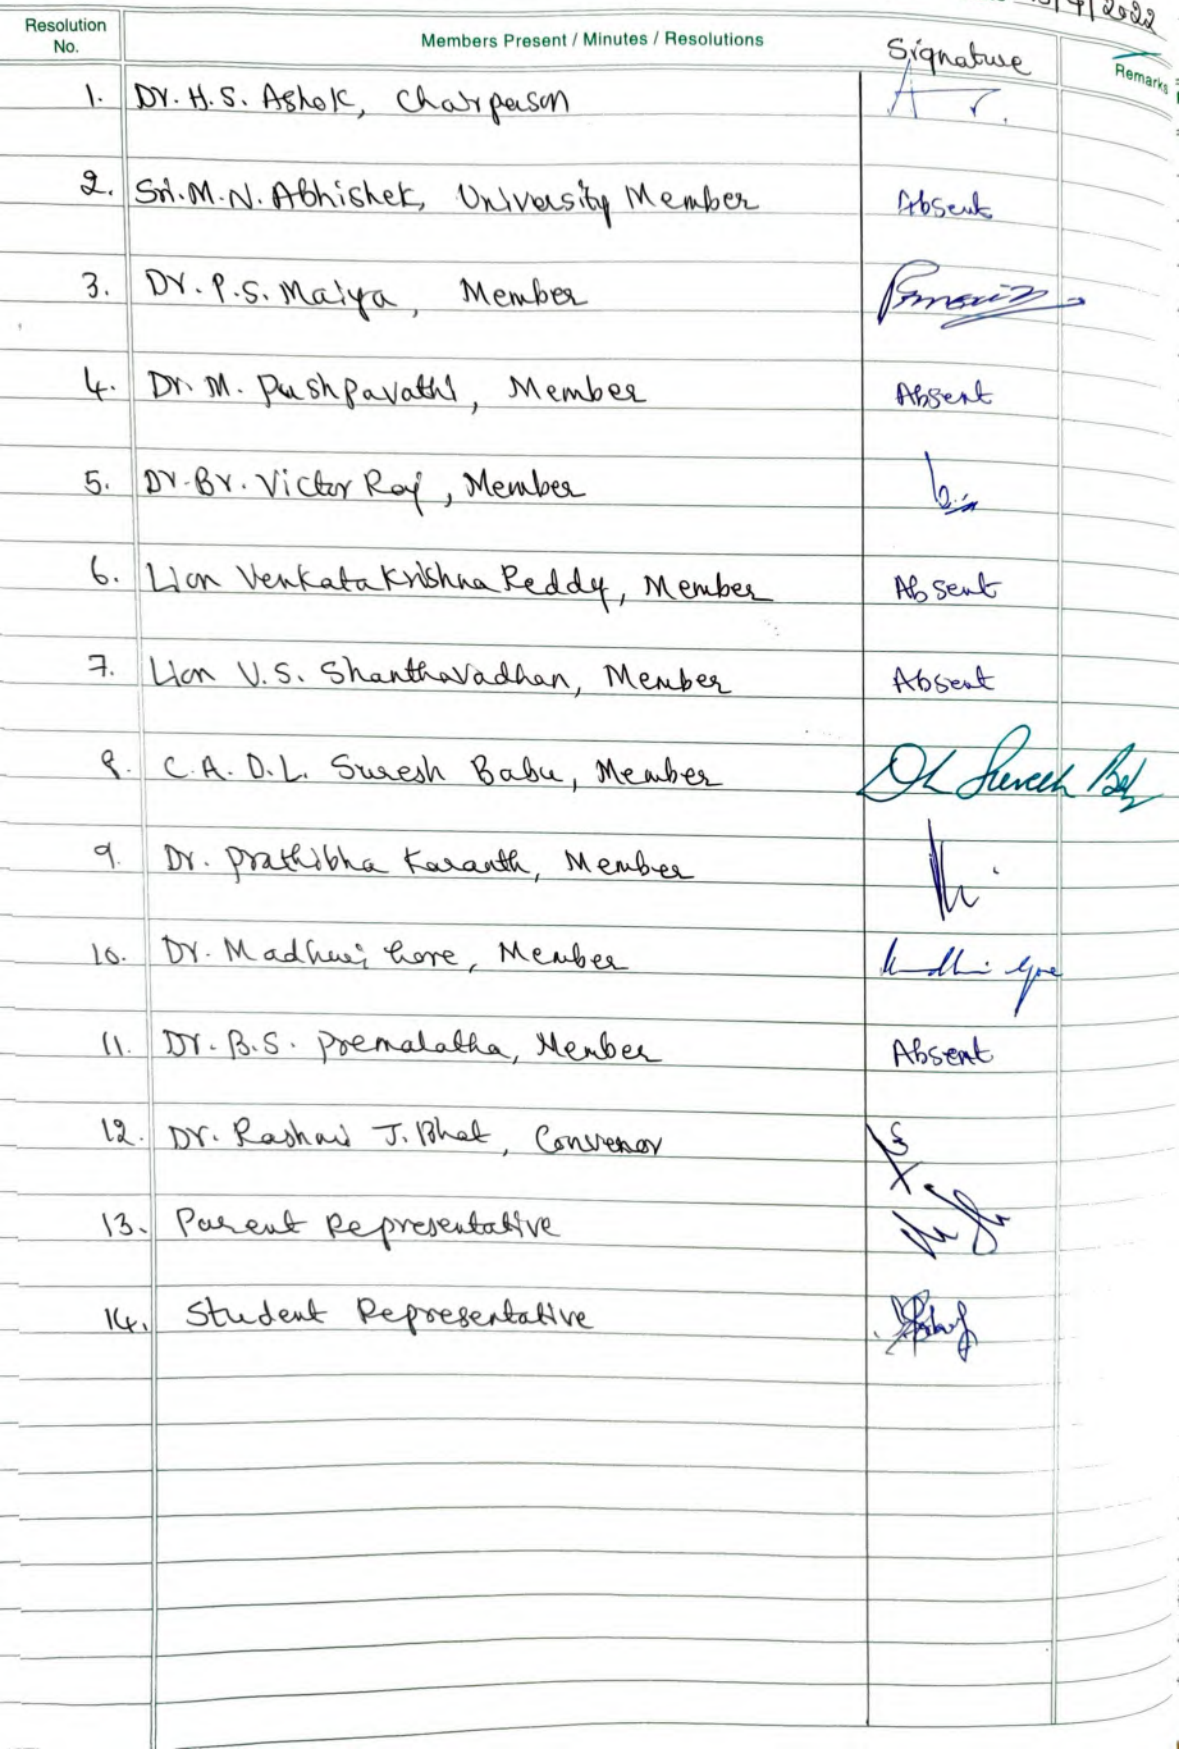 /4/2022
Resolution No.
Members Present / Minutes / Resolutions
Signature
Remarks
1. Dr. H. S. Ashok, Chairperson
2. Sri. M. N. Abhishek, University Member Absent
3. Dr. P. S. Maiya, Member
4. Dr. M. Pushpavathi, Member Absent
5. Dr. Br. Victor Raj, Member
6. Lion Venkata Krishna Reddy, Member Absent
7. Lion V. S. Shanthavadhan, Member Absent
8. C. A. D. L. Suresh Babu, Member DL Suresh Bab
9. Dr. Prathibha Karanth, Member
10. Dr. Madhuri Gore, Member
11. Dr. B. S. Premalatha, Member Absent
12. Dr. Rashmi J. Bhat, Convenor
13. Parent Representative
14. Student Representative